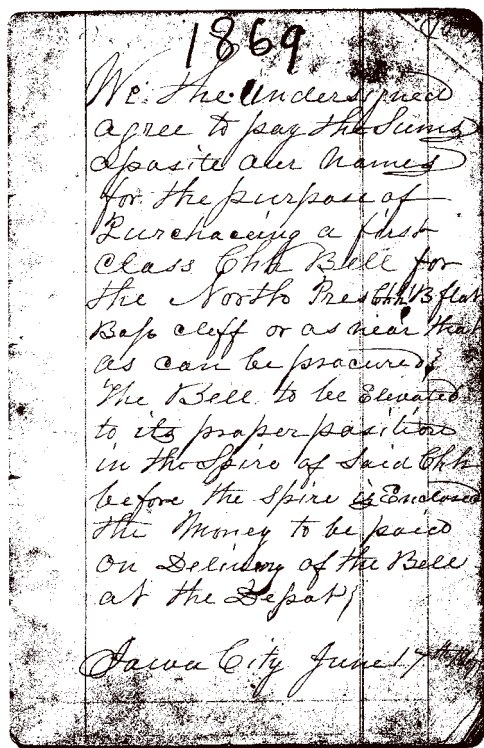 1869
We the Undersigned
agree to pay the Sums
oposite our Names
for the purpose of
Purchaceing a first
class Chh Bell for
the North Pres Chh B flat
Bass cleff or as near that
as can be procured;
The Bell to be Elevated
to its proper position
in the Spire of Said Chh
before the Spire is Enclosed
the Money to be paid
on Delivery of the Bell
at the Depot;
Iowa City June 17th